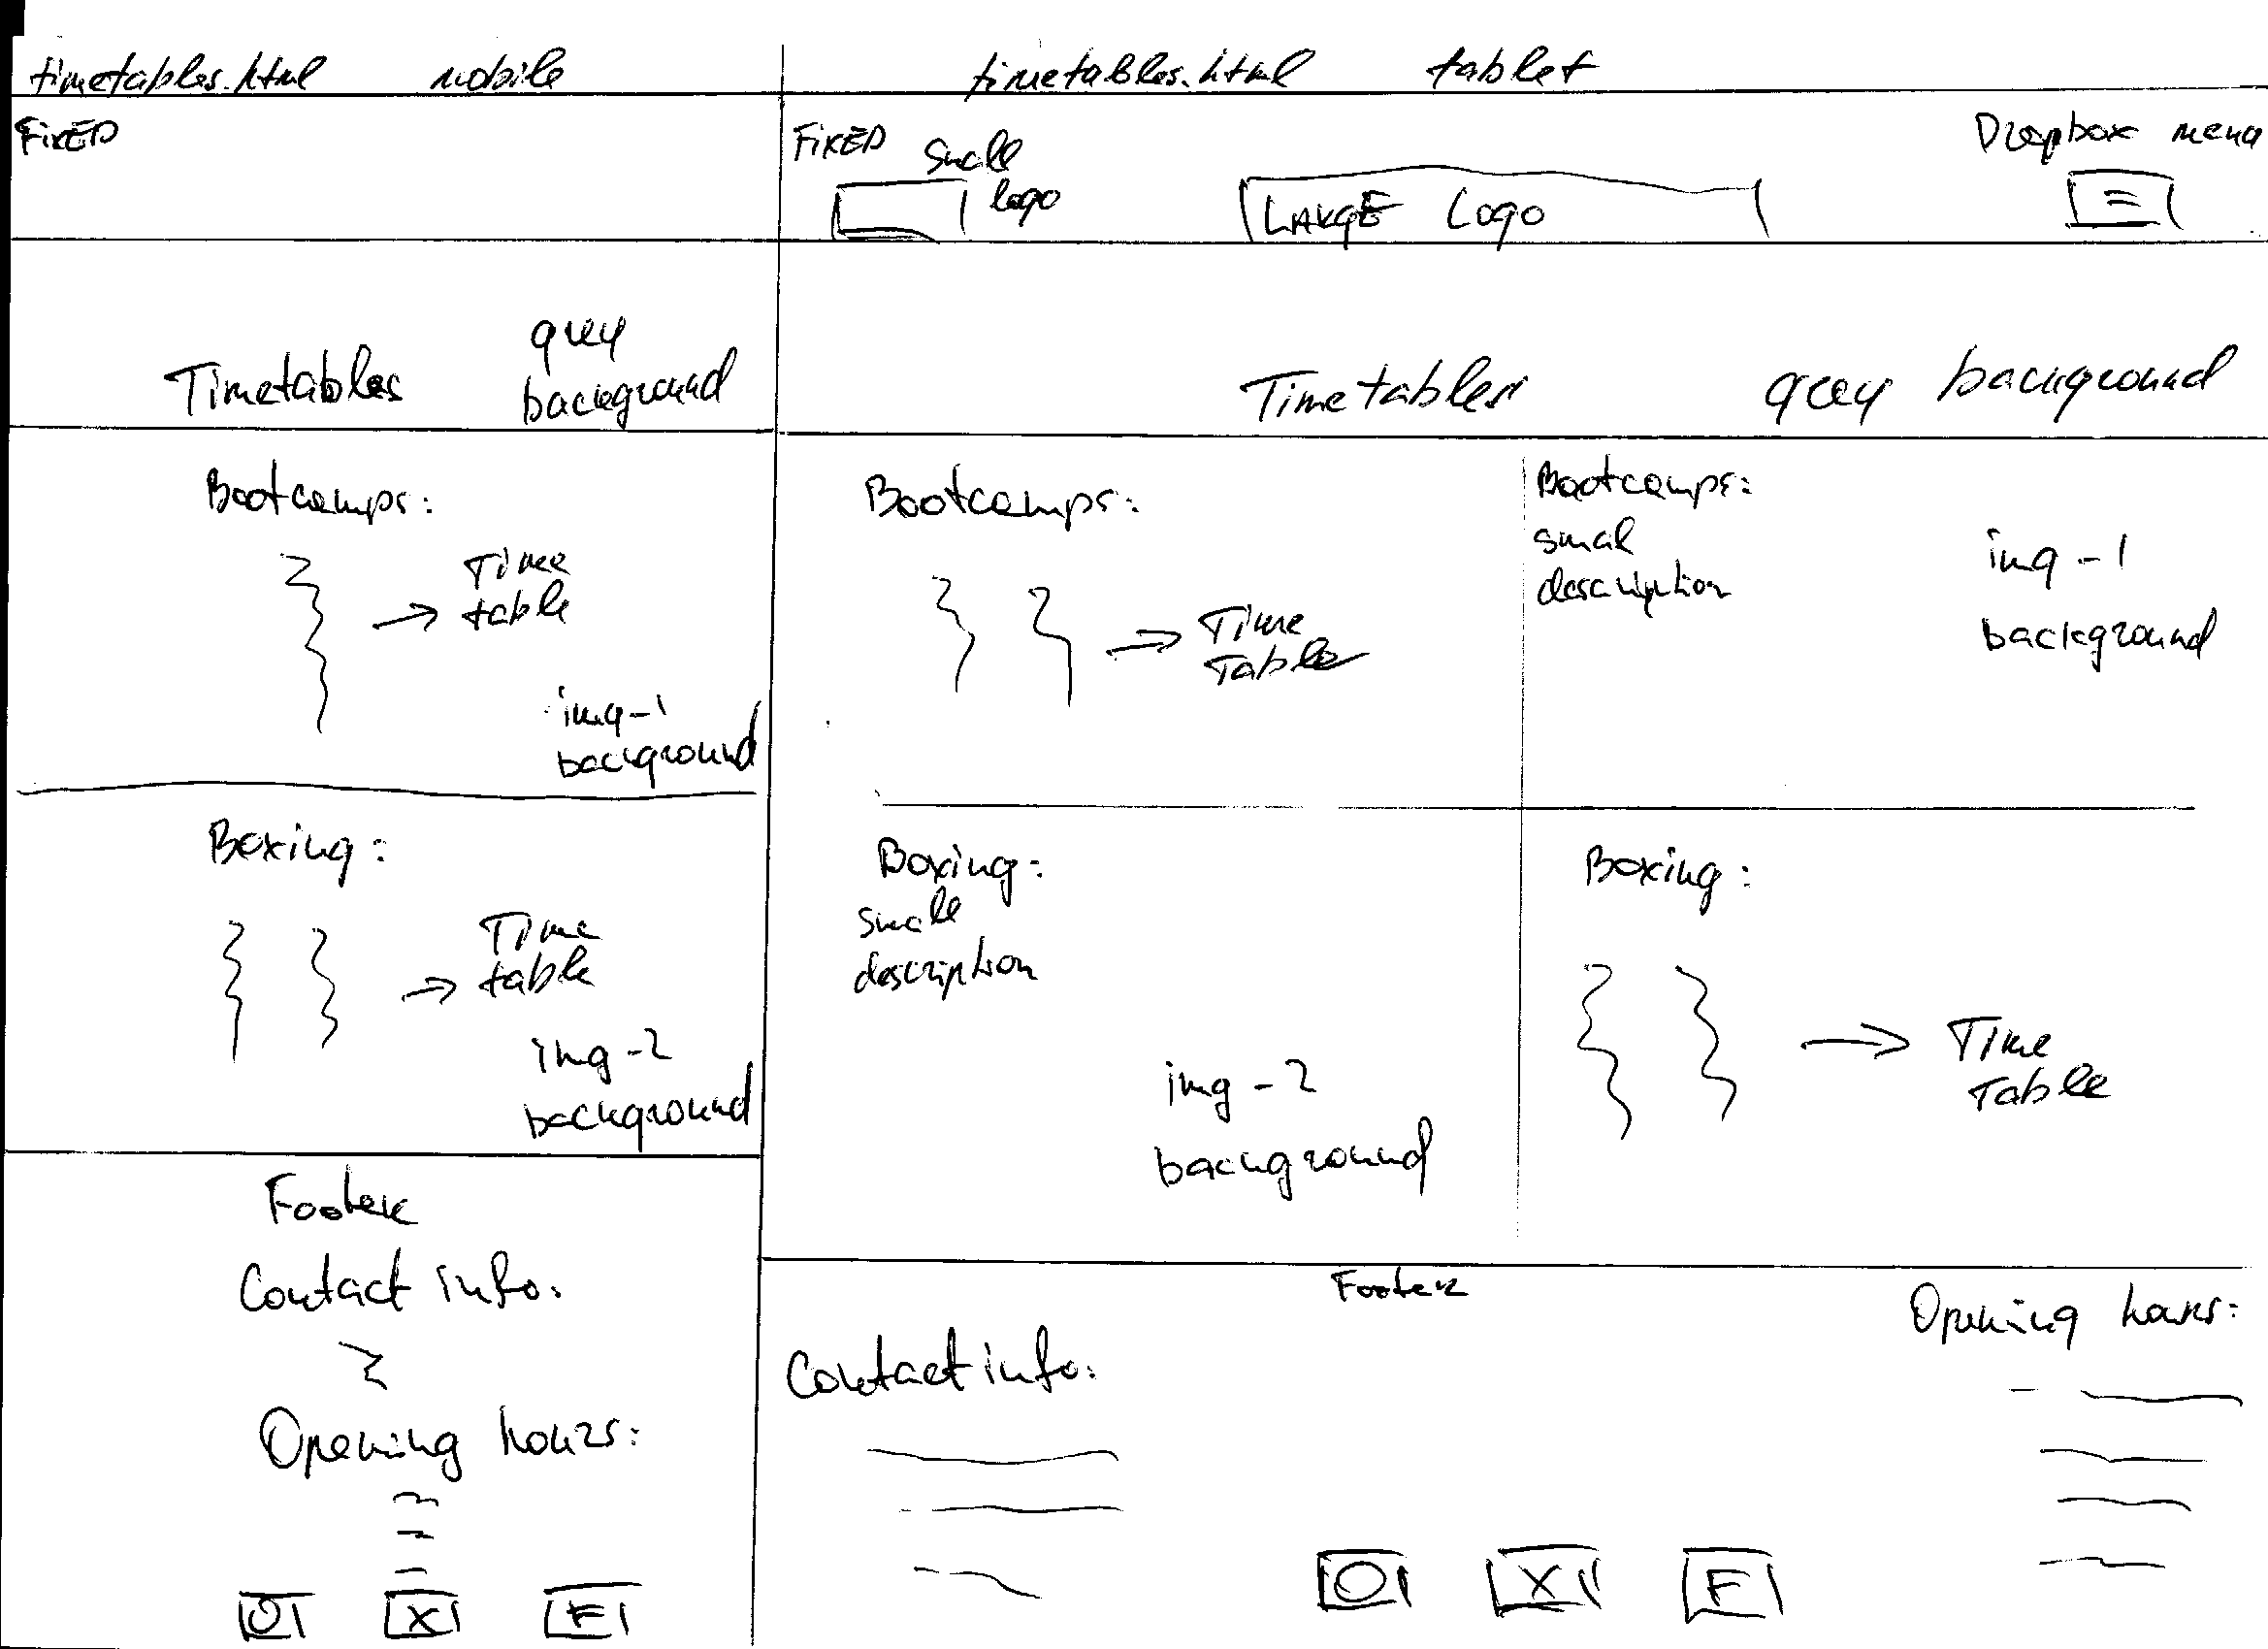 timetables.html mobile
FIXED
Timetables
grey
background
Bootcamps:
Time
table
img-1
background
Boxing:
Time
table
img-2
background
Footer
Contact info:
Opening hours:
O X F
timetables.html tablet
FIXED
Small
logo
LARGE Logo
Dropbox menu
Timetables grey background
Bootcamps:
Time
Table
Bootcamps:
smal
description
img-1
background
Boxing:
small
description
img-2
background
Boxing:
Time
Table
Footer
Contact info:
Opening hours:
O X F